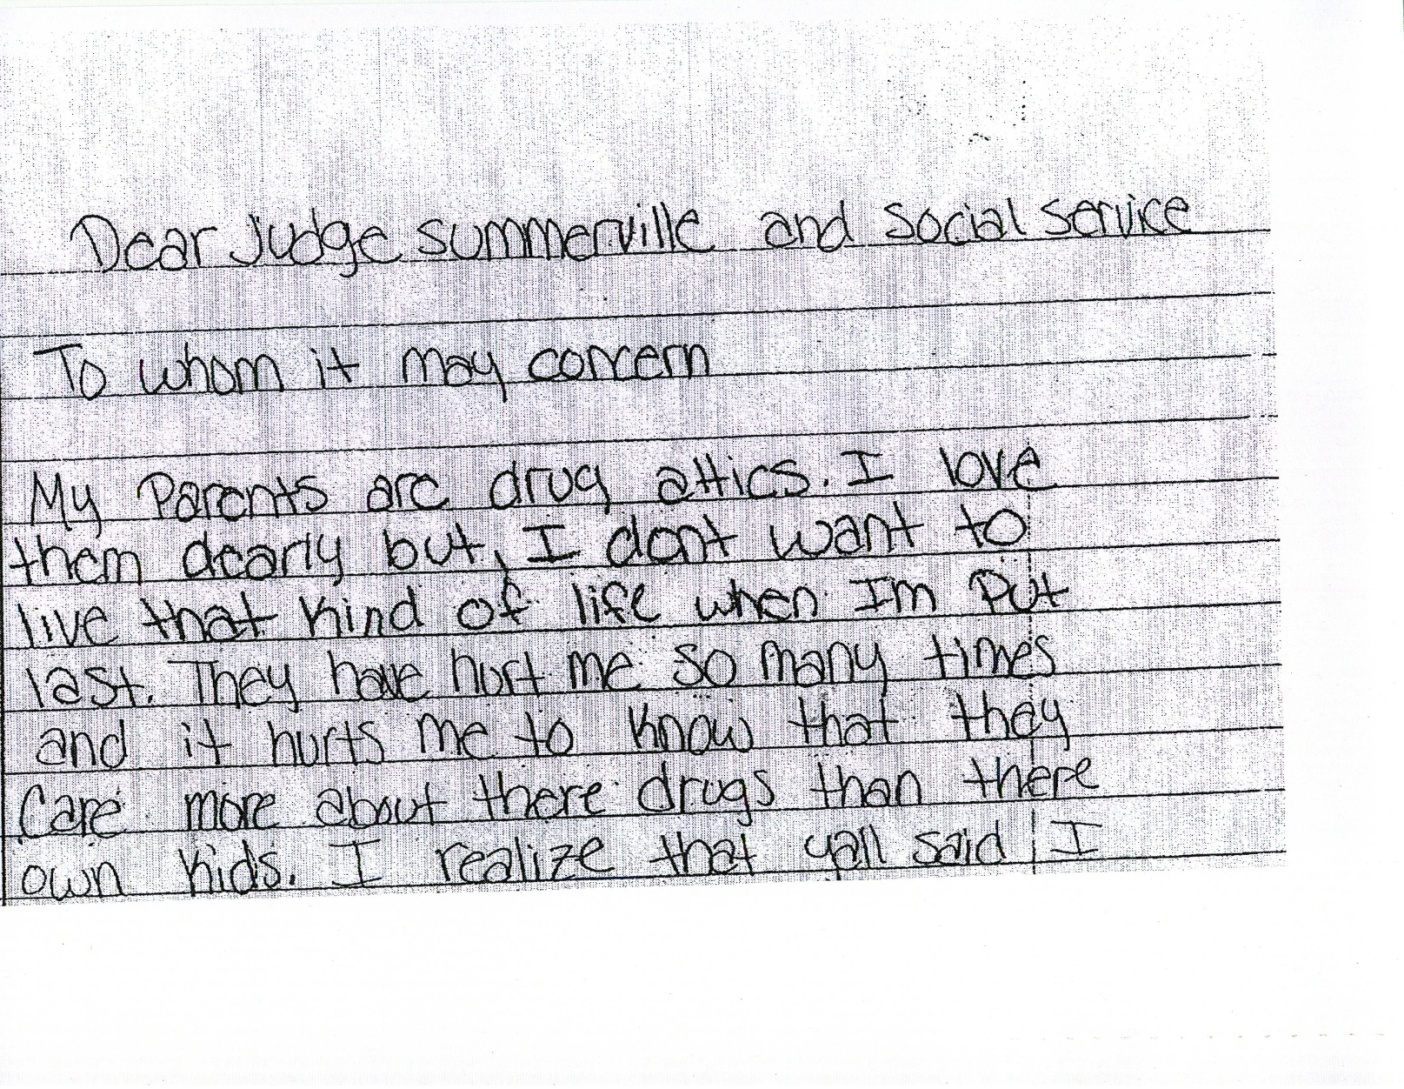 Dear Judge summerville and social service
To whom it may concern
My Parents are drug attics. I love
them dearly but, I dont want to
live that kind of life when Im put
last. They have hurt me so many times
and it hurts me to know that they
Care more about there drugs than there
own kids. I realize that yall said I